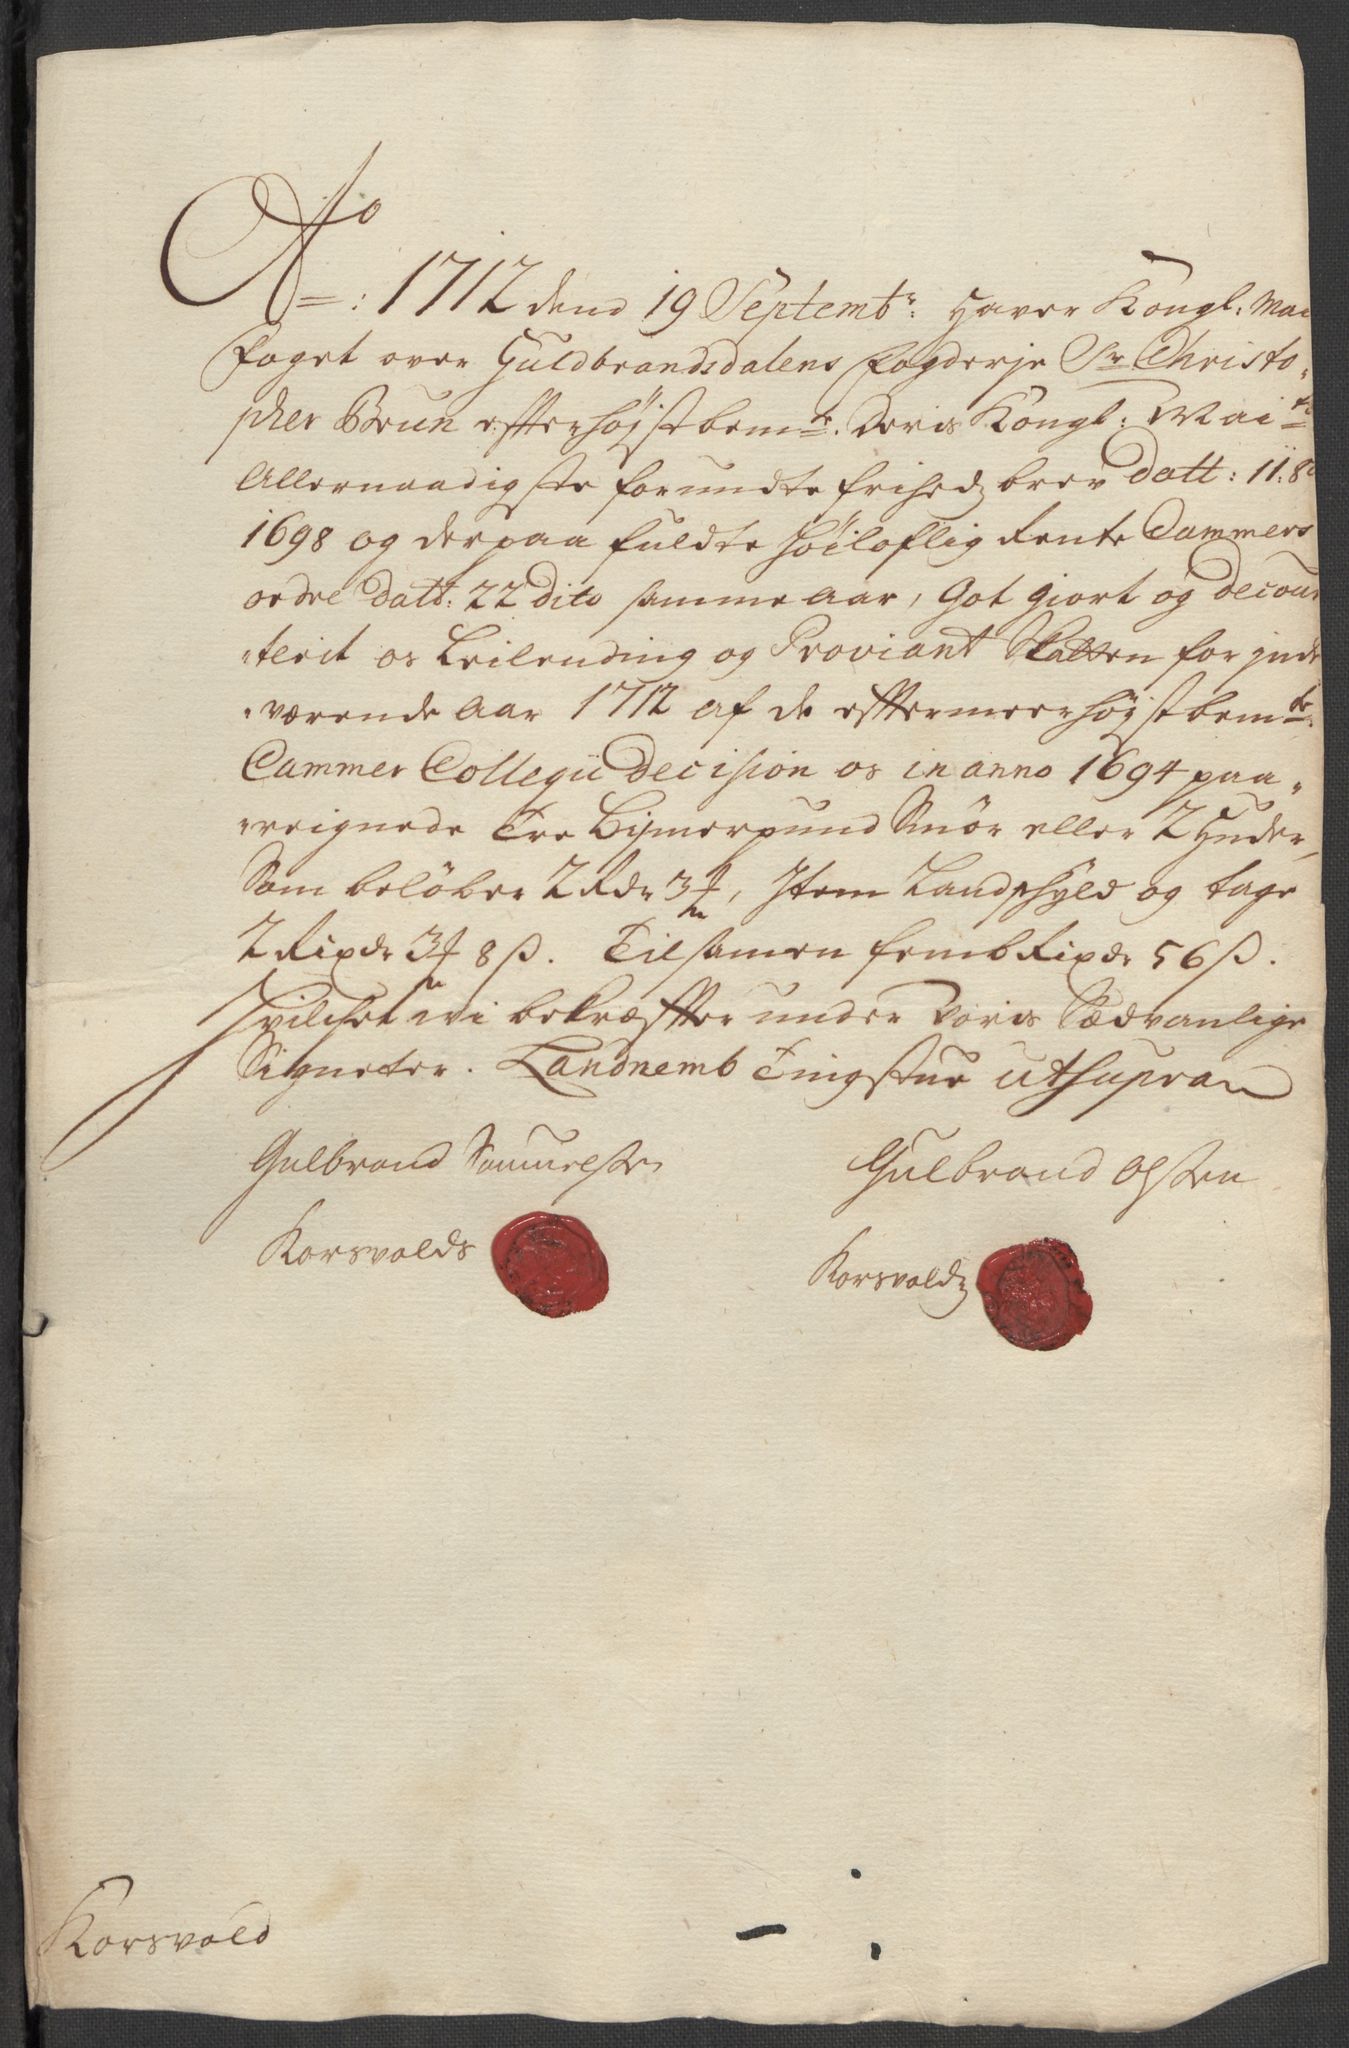 Ao: 1712 dend 19 Septembr: Haver Kongl: Mai
foget over Guldbrandsdalens fogderje Sr Christo-
pher Brun effter højstbemte: Deris Kongl: Maits
Allernaadigste forundte friheds brev Datt: 11: 8b
1698 og derpaa fuldte höiloflig Rente Cammers
ordre datt: 22 dito samme aar, Got giort og decou
terit os Leilending og Proviant Skatten for inde
værende Aar 1712 af de effter meerhøgstbemte:
Cammer Collegii Decision os in anno 1694 paa-
reignede Tre Bismerpund Smör eller 2 Huder,
Som belöber 2 Rdr 3 , Item Landschyld og tage
2 Rixdr 3 8 ß. Tilsamen femb Rixdr 56 ß.
Hvilchet wi bekræffter under voris Sædvanlige
Signeter. Landnemb Tingstue ut supra
Gulbrand Samuelsen Gulbrand Olsen
Korsvolds Korsvolds
Korsvold